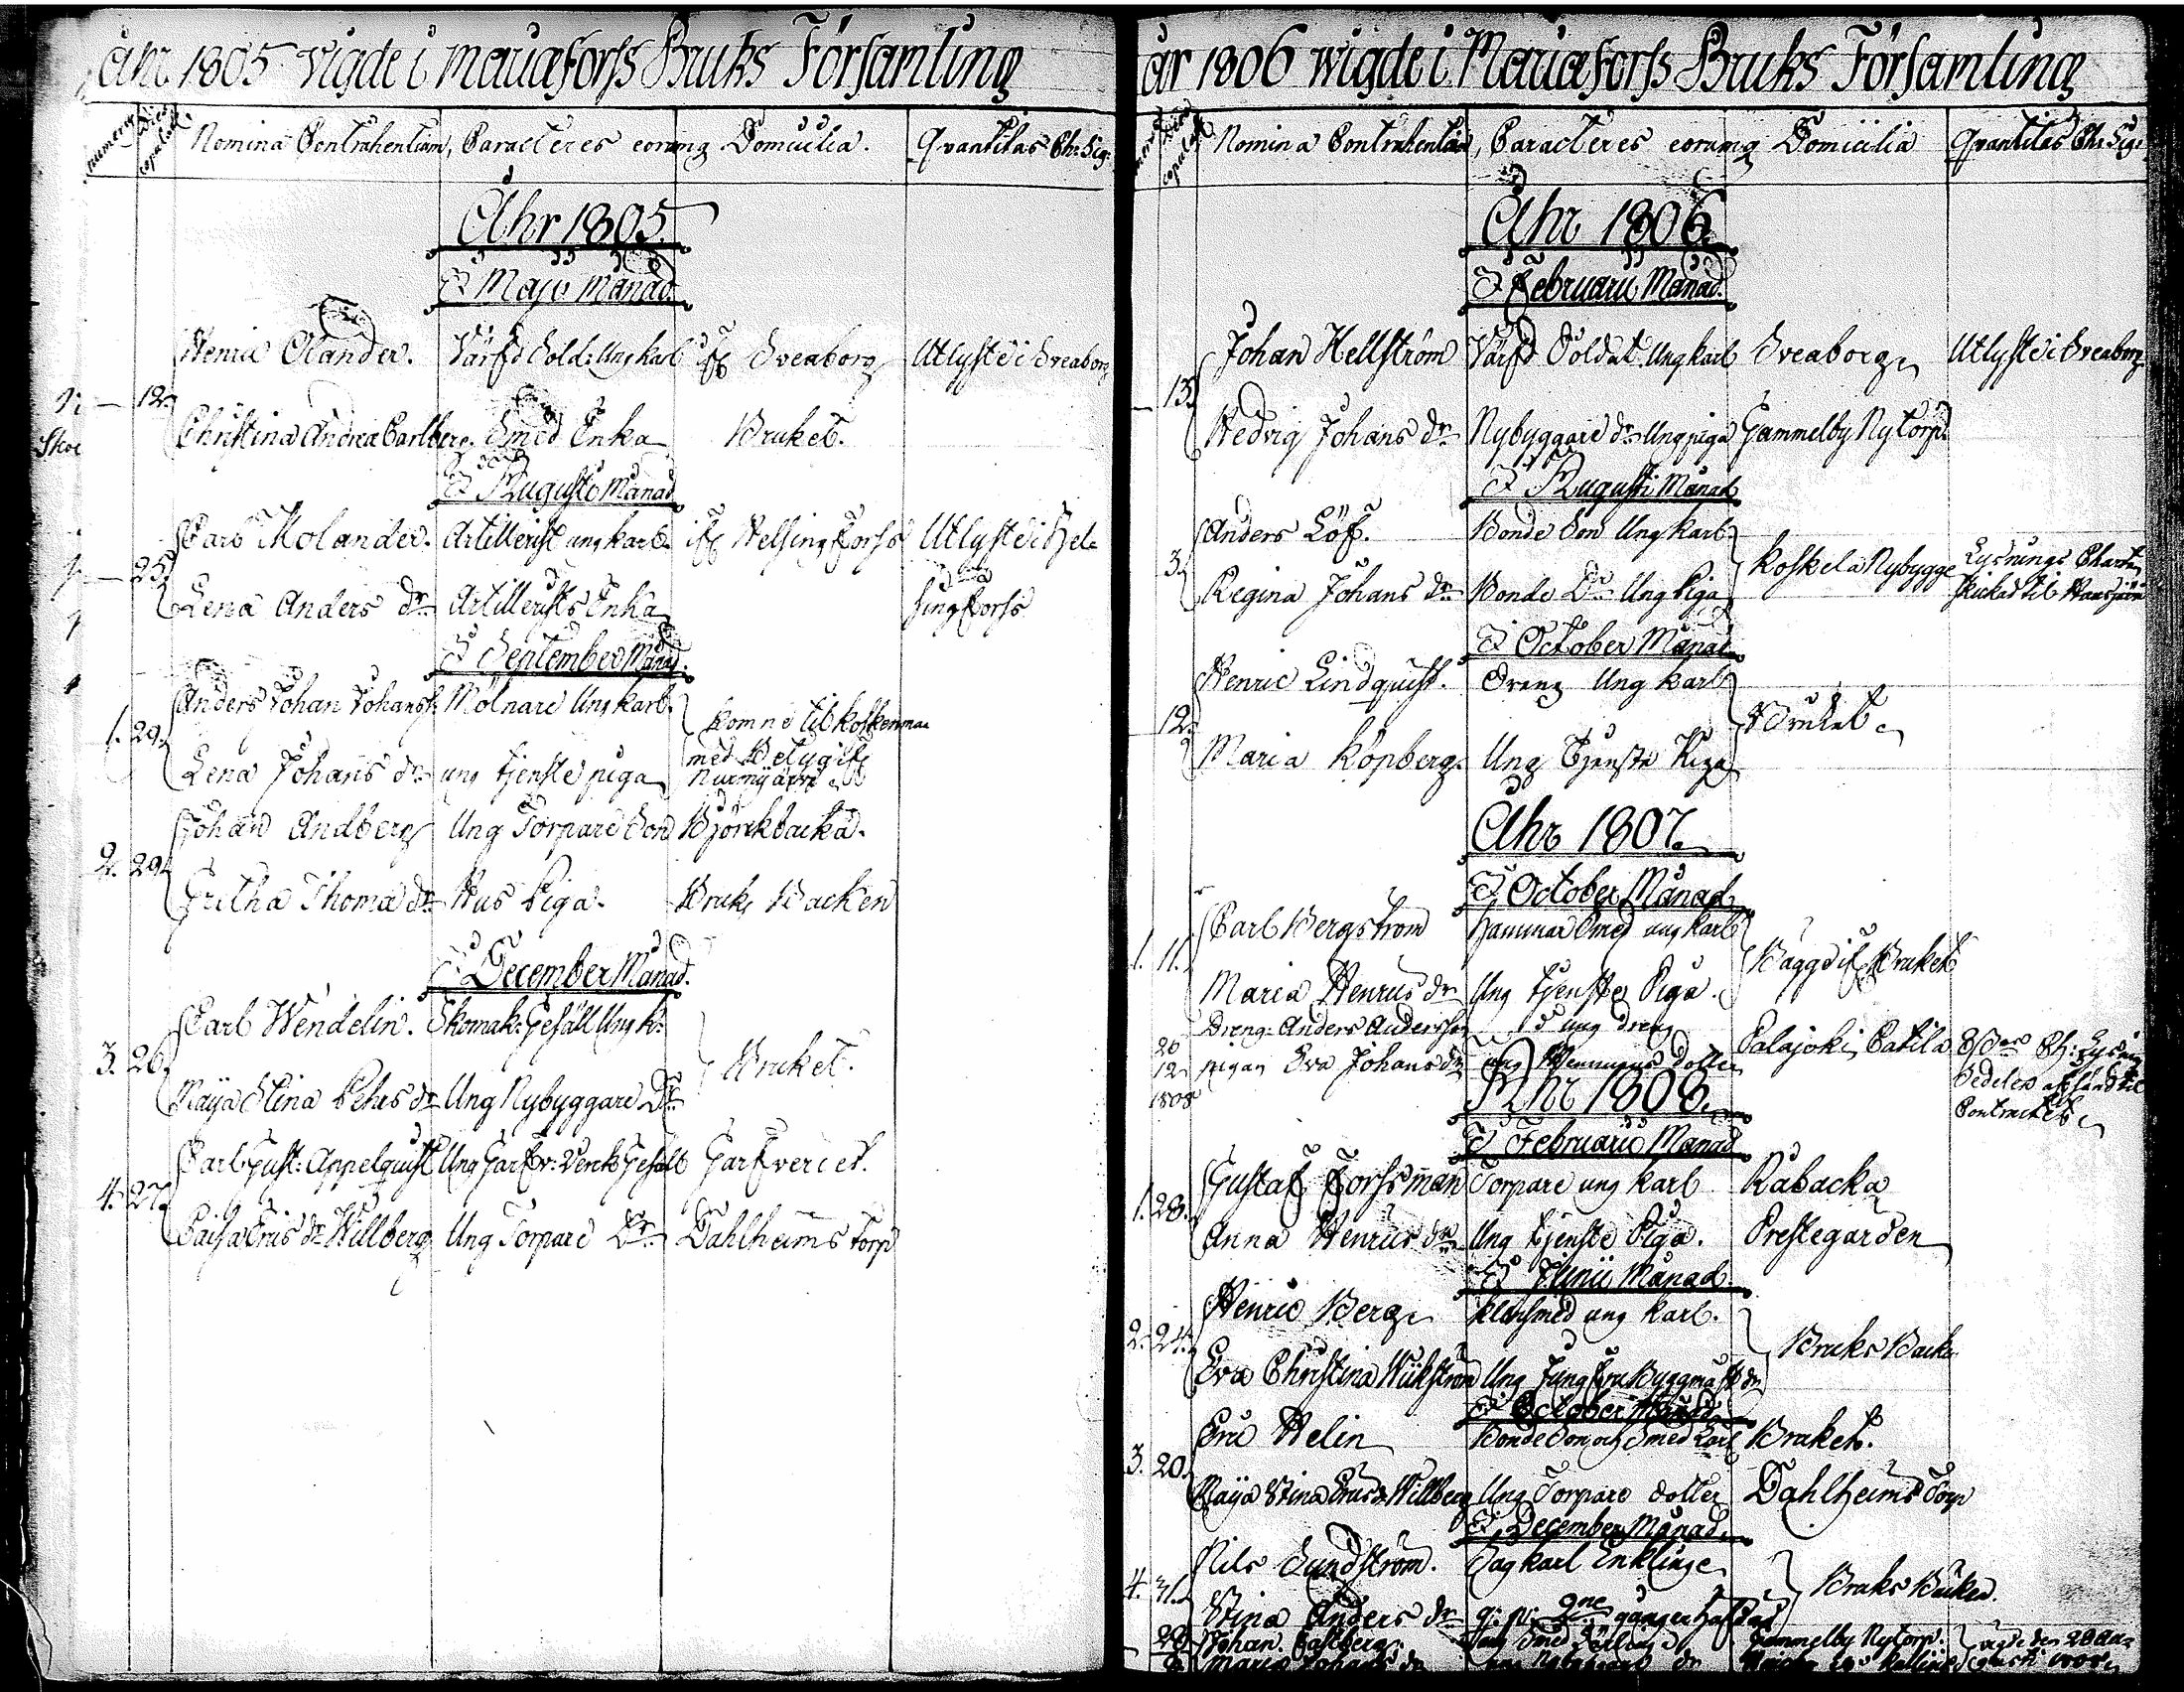 åhr 1805 vigde i mariæforss Bruks Församling
numerus dies copulat: Nomina Contrahentium, Caracteres eorumq Domicilia. Qvantitas Ch: Sig:
Ahr 1805.
I Maji Månad.
Henric Olander. Värfd Sold: Ung karl Sveaborg Utlyste i Sveaborg
12.
Christina Andrea Carlberg. Smed Enka Bruket.
I Augusti Månad
Carl Molander. Artillerist ung karl. Helsingforss Utlyste i Hel-
25.
Lena Anders dr Artillerists Enka singforss
I September Månad.
Anders Johan Johanss: Molnare Ung karl. komne til koskenmaa
1. 29. med Betyg if
Lena Johans dr ung tjenste piga Nurmijärvi
Johan Andberg Ung Torpare Son Björckbacka.
2. 29.
Gretha Thomæ dr Hus Piga. Bruks Backen
I December Månad.
Carl Wendelin. Skomak: Gesäll Ung k:
3. 26. Bruket.
Maja Stina Pehrs dr Ung Nybyggare Dr
Carl Gust: Appelquist Ung Garfv: Verks Gesäll Garfveriet.
4. 27.
Caisa Erics dr Willberg Ung Torpare Dr Dahlheims torp
år 1806 wigde i Mariæforss Bruks Församling
Nomina Contrahentium, Caracteres eorumq Domicilia Qvantitas Ch: Sig:
Ahr 1806.
I Februarii Månad.
Johan Hellström Värfd Soldat. Ung karl Sveaborg Utlyste i Sveaborg
13.
Hedvig Johans dr Nybyggare dr Ung piga Gammelby Nytorp.
I Augusti Månad
Anders Löf. Bonde Son Ung karl.
3. koskela Nybygge Lysnings Charta
Regina Johans dr Bonde Dr Ung Piga skickas til
I October Månad
Henric Lindquist. Dreng Ung karl
12. Bruket
Maria Köpberg. Ung Tjenste Piga
Ahr 1807.
I October Månad
Carl Bergström Hammar Smed ung karl
1. 11. Bägge if Bruket
Maria Henrics dr Ung tjenste Piga.
Dreng: Anders Andersson ung dreng
26 Palajoki, Catila
12 pigan Eva Johans dr ung dotter
1808 Ahr 1808.
Contracter
I Februarii Månad
Gustaf Forssman Torpare ung karl Råbacka
1. 28.
Anna Henrics dr Ung tjenste Piga. Prestegården
I Junii Månad
Henric Berg klensmed ung karl.
2. 24. Bruks Backe
Eva Christina Wikström Ung Jungfru Byggmäst: dr
I October Månad
Eric Helin Bonde Son och Smed karl Bruket.
3. 20.
Maja Stina Erics dr Willberg Ung Torpare dotter Dahlheims Torp
I December Månad.
Nils Sundström. Enkling
4. 31. Bruks Backen.
Stina Anders dr 2ne gånger
28 Johan Carlberg. Gammelby Nytorp.
Maria Johans dr